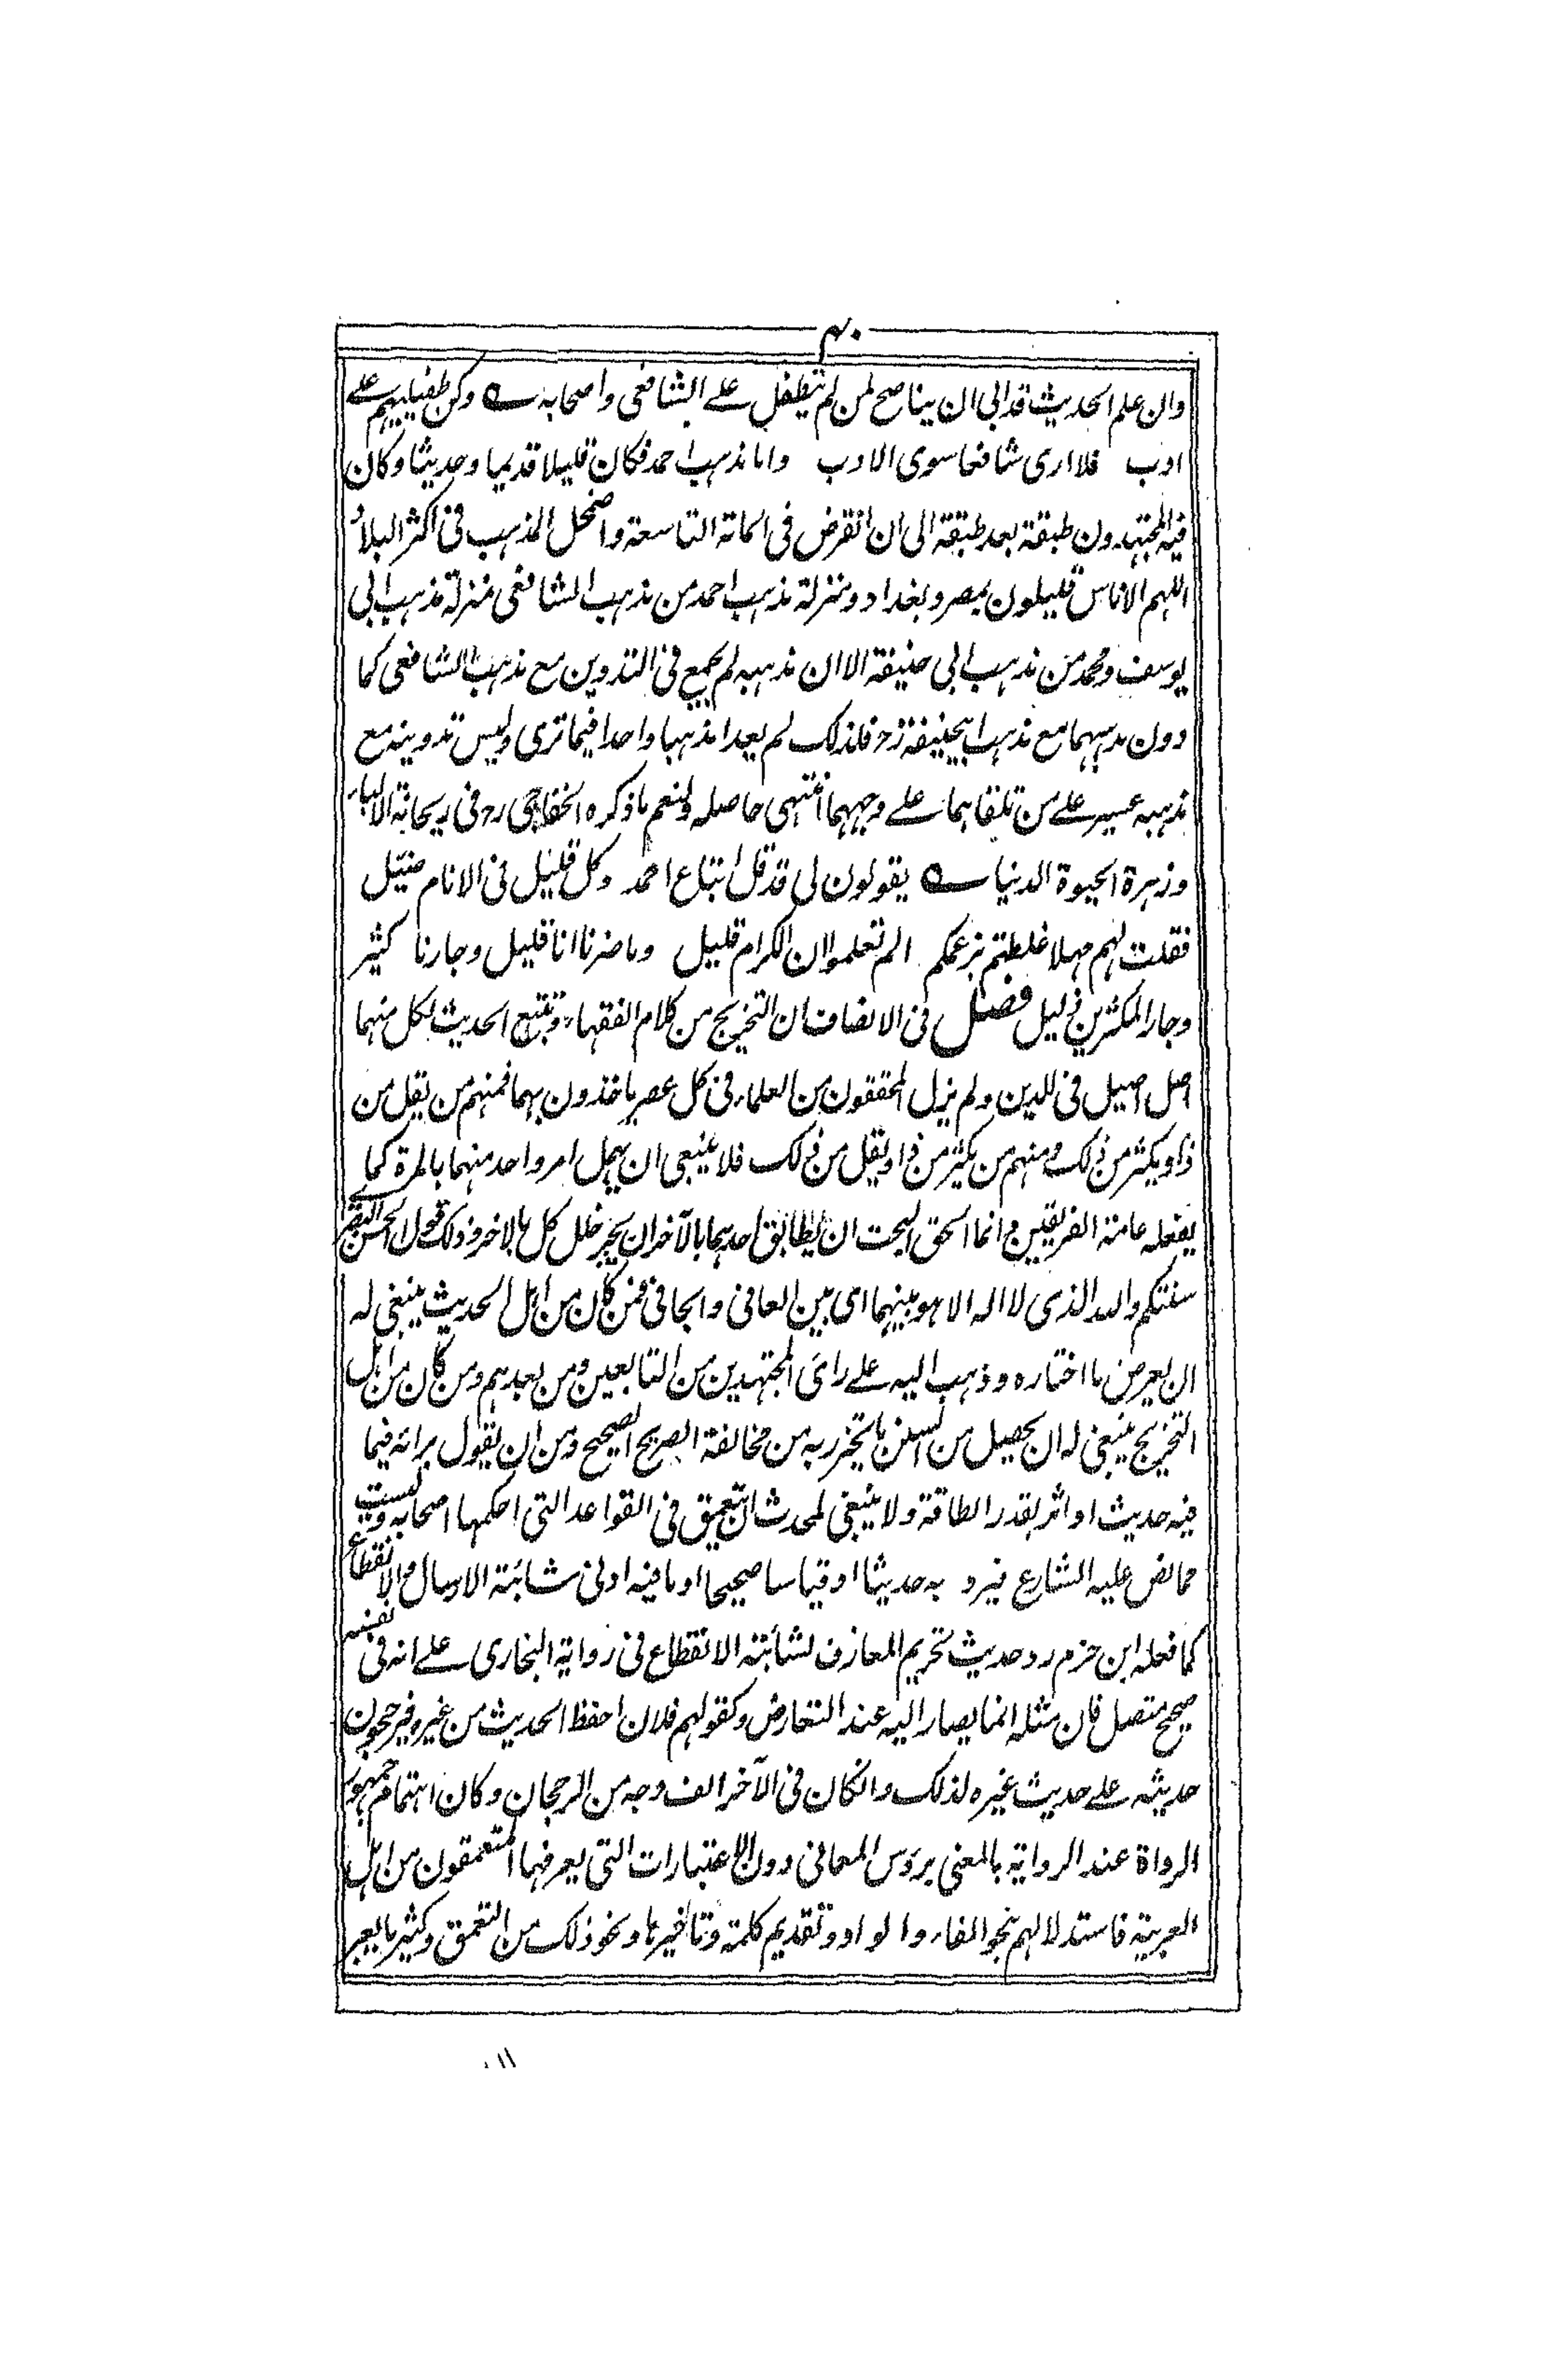 ۴۰
وان علم الحديث قد ابى ان يناصح لمن لم يتطفل على الشافعى واصحابه ؎ وكن طفيليهم على
ادب فلا ارى شافعا سوى الادب واما مذهب احمد فكان قليلا قديما وحديثا وكان
فيه المجتهدون طبقة بعد طبقة الى ان انقرض فى المائة التاسعة واضمحل المذهب فى اكثر البلاد
اللهم الا ناس قليلون بمصر وبغداد ومنزلة مذهب احمد من مذهب الشافعى منزلة مذهب ابى
يوسف ومحمد من مذهب ابى حنيفة الا ان مذهبه لم يجمع فى التدوين مع مذهب الشافعى كما
دون مذهبهما مع مذهب ابيحنيفة رح فلذلك لم يعدا مذهبا واحدا فيما ترى وليس تدوينه مع
مذهبه عسير على من تلقاهما على وجههما انتهى حاصله ولنعم ما ذكره الخفاجى رح فى ريحانة الالباء
وزهرة الحيوة الدنيا ؎ يقولون لى قد قل اتباع احمد وكل قليل فى الانام ضئيل
فقلت لهم مهلا غلطتم بزعمكم الم تعلموا ان الكرام قليل وما ضرنا انا قليل وجارنا كثير
وجار المكثرين ذليل فصل فى الانصاف ان التخريج من كلام الفقهاء وتتبع الحديث لكل منهما
اصل اصيل فى الدين ولم يزل المحققون من العلماء فى كل عصر ياخذون بهما فمنهم من يقل من
ذا ويكثر من ذلك ومنهم من يكثر من ذا ويقل من ذلك فلا ينبغى ان يهمل امر واحد منهما بالمرة كما
يفعله عامة الفريقين وانما الحق البحت ان يطابق احدهما بالآخر ان يجبر خلل كل بالاخر وذلك قول الحسن البصرى
سنتكم والله الذى لا اله الا هو بينهما اى بين العافى والجافى فمن كان من اهل الحديث ينبغى له
ان يعرض ما اختاره وذهب اليه على راى المجتهدين من التابعين ومن بعدهم ومن كان من اهل
التخريج ينبغى له ان يحصل من السنن ما يتحرز به من مخالفة الصريح الصحيح ومن ان يقول برائه فيما
فيه حديث او اثر بقدر الطاقة ولا ينبغى لمحدث ان يتعمق فى القواعد التى احكمها اصحابه وليست
مما نص عليه الشارع فيرد به حديثا او قياسا صحيحا او ما فيه ادنى شائبة الارسال والانقطاع
كما فعله ابن حزم رد حديث تحريم المعازف لشائبة الانقطاع فى رواية البخارى على انه فى نفسه
صحيح متصل فان مثله انما يصار اليه عند التعارض وكقولهم فلان احفظ الحديث من غيره فيرجحون
حديثه على حديث غيره لذلك وانكان فى الآخر الف وجه من الرجحان وكان اهتمام جمهور
الرواة عند الرواية بالمعنى برؤس المعانى دون الاعتبارات التى يعرفها المتعمقون من اهل
العربية فاستدلالهم بنحو الفاء والواو وتقديم كلمة وتاخيرها ونحو ذلك من التعمق وكثير ما يعبر